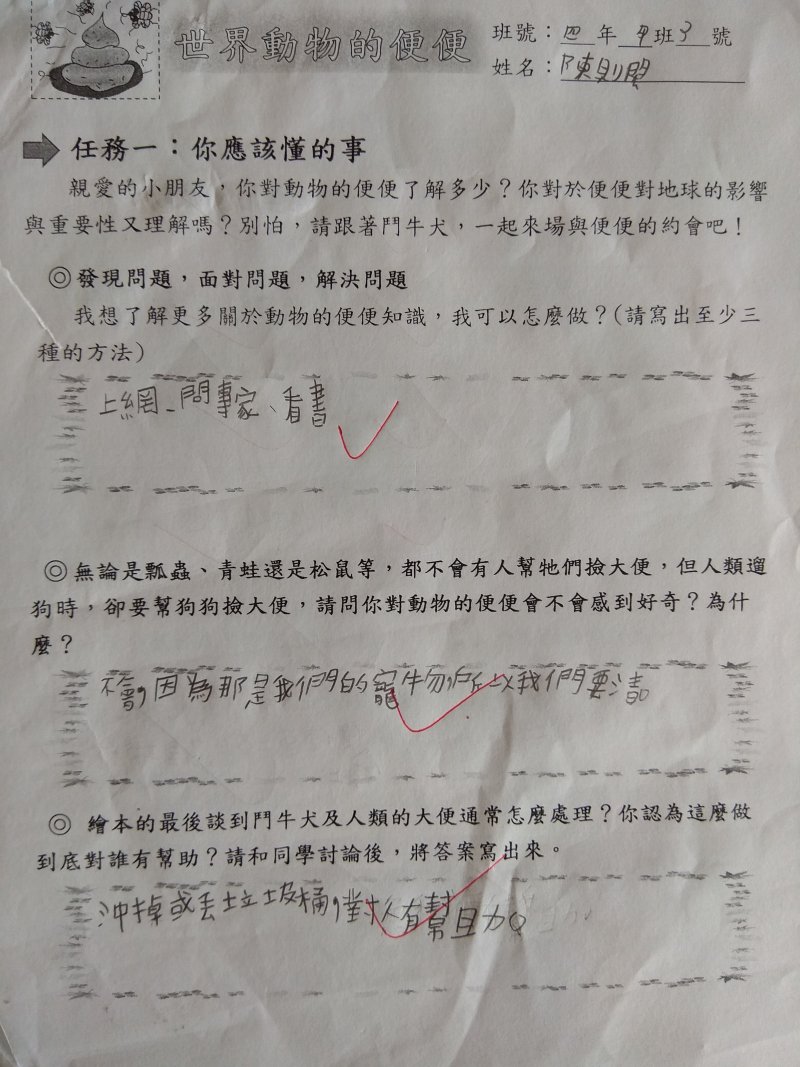 世界動物的便便
班號：四年甲班3號
姓名：陳則
任務一：你應該懂的事
親愛的小朋友，你對動物的便便了解多少？你對於便便對地球的影響
與重要性又理解嗎？別怕，請跟著鬥牛犬，一起來場與便便的約會吧！
◎發現問題，面對問題，解決問題
我想了解更多關於動物的便便知識，我可以怎麼做？(請寫出至少三
種的方法)
上網、問專家、看書
◎無論是瓢蟲、青蛙還是松鼠等，都不會有人幫牠們撿大便，但人類遛
狗時，卻要幫狗狗撿大便，請問你對動物的便便會不會感到好奇？為什
麼？
不會，因為那是我們的寵物，所以我們要清
◎ 繪本的最後談到鬥牛犬及人類的大便通常怎麼處理？你認為這麼做
到底對誰有幫助？請和同學討論後，將答案寫出來。
沖掉或丟垃圾桶，對人有幫助。